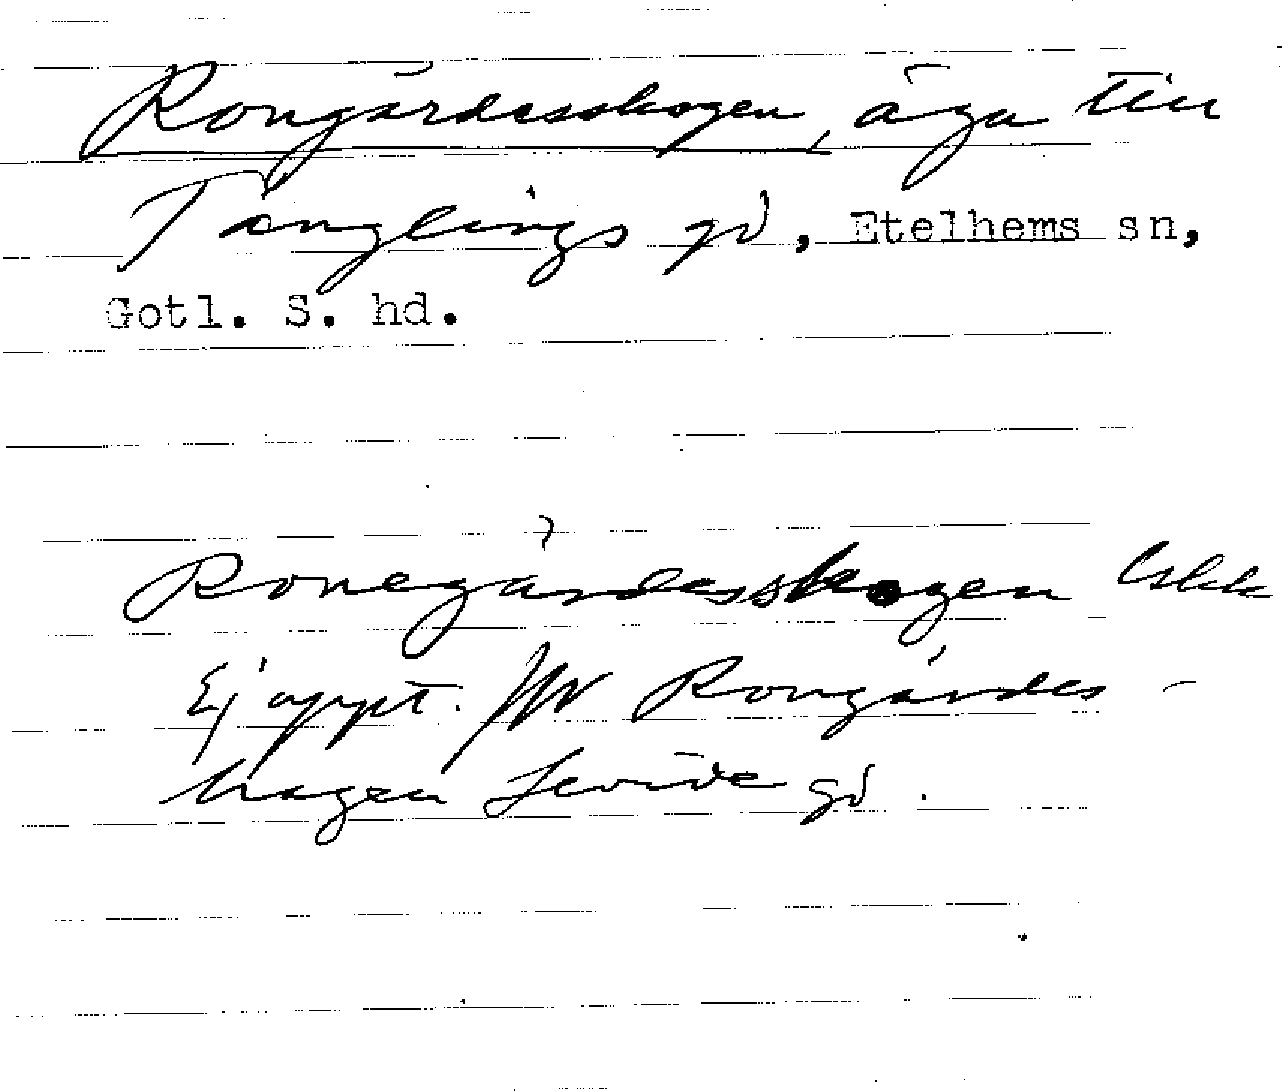 Rongårdesskogen, äga till
Tänglings gd, Etelhems sn,
Gotl. S. hd.
Ronegårdesskogen
Ej uppt. Jfr Rongårdes-
hagen Levide gd.